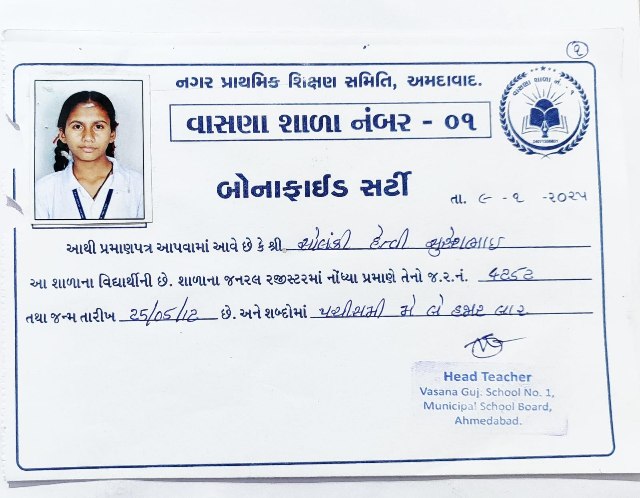 ૧
નગર પ્રાથમિક શિક્ષણ સમિતિ, અમદાવાદ.
વાસણા શાળા નંબર - ૦૧
વાસણા શાળા નં. ૧
બોનાફાઈડ સર્ટી
તા. ૯-૧ -૨૦૨૫
આથી પ્રમાણપત્ર આપવામાં આવે છે કે શ્રી સોલંકી હેન્વી સુરેશભાઇ
આ શાળાના વિદ્યાર્થીની છે. શાળાના જનરલ રજીસ્ટરમાં નોંધ્યા પ્રમાણે તેનો જ.ર.નં.
તથા જન્મ તારીખ 25/05/12 છે. અને શબ્દોમાં પચીસમી મે બે હજાર બાર
Head Teacher
Vasana Guj. School No. 1,
Municipal School Board,
Ahmedabad.